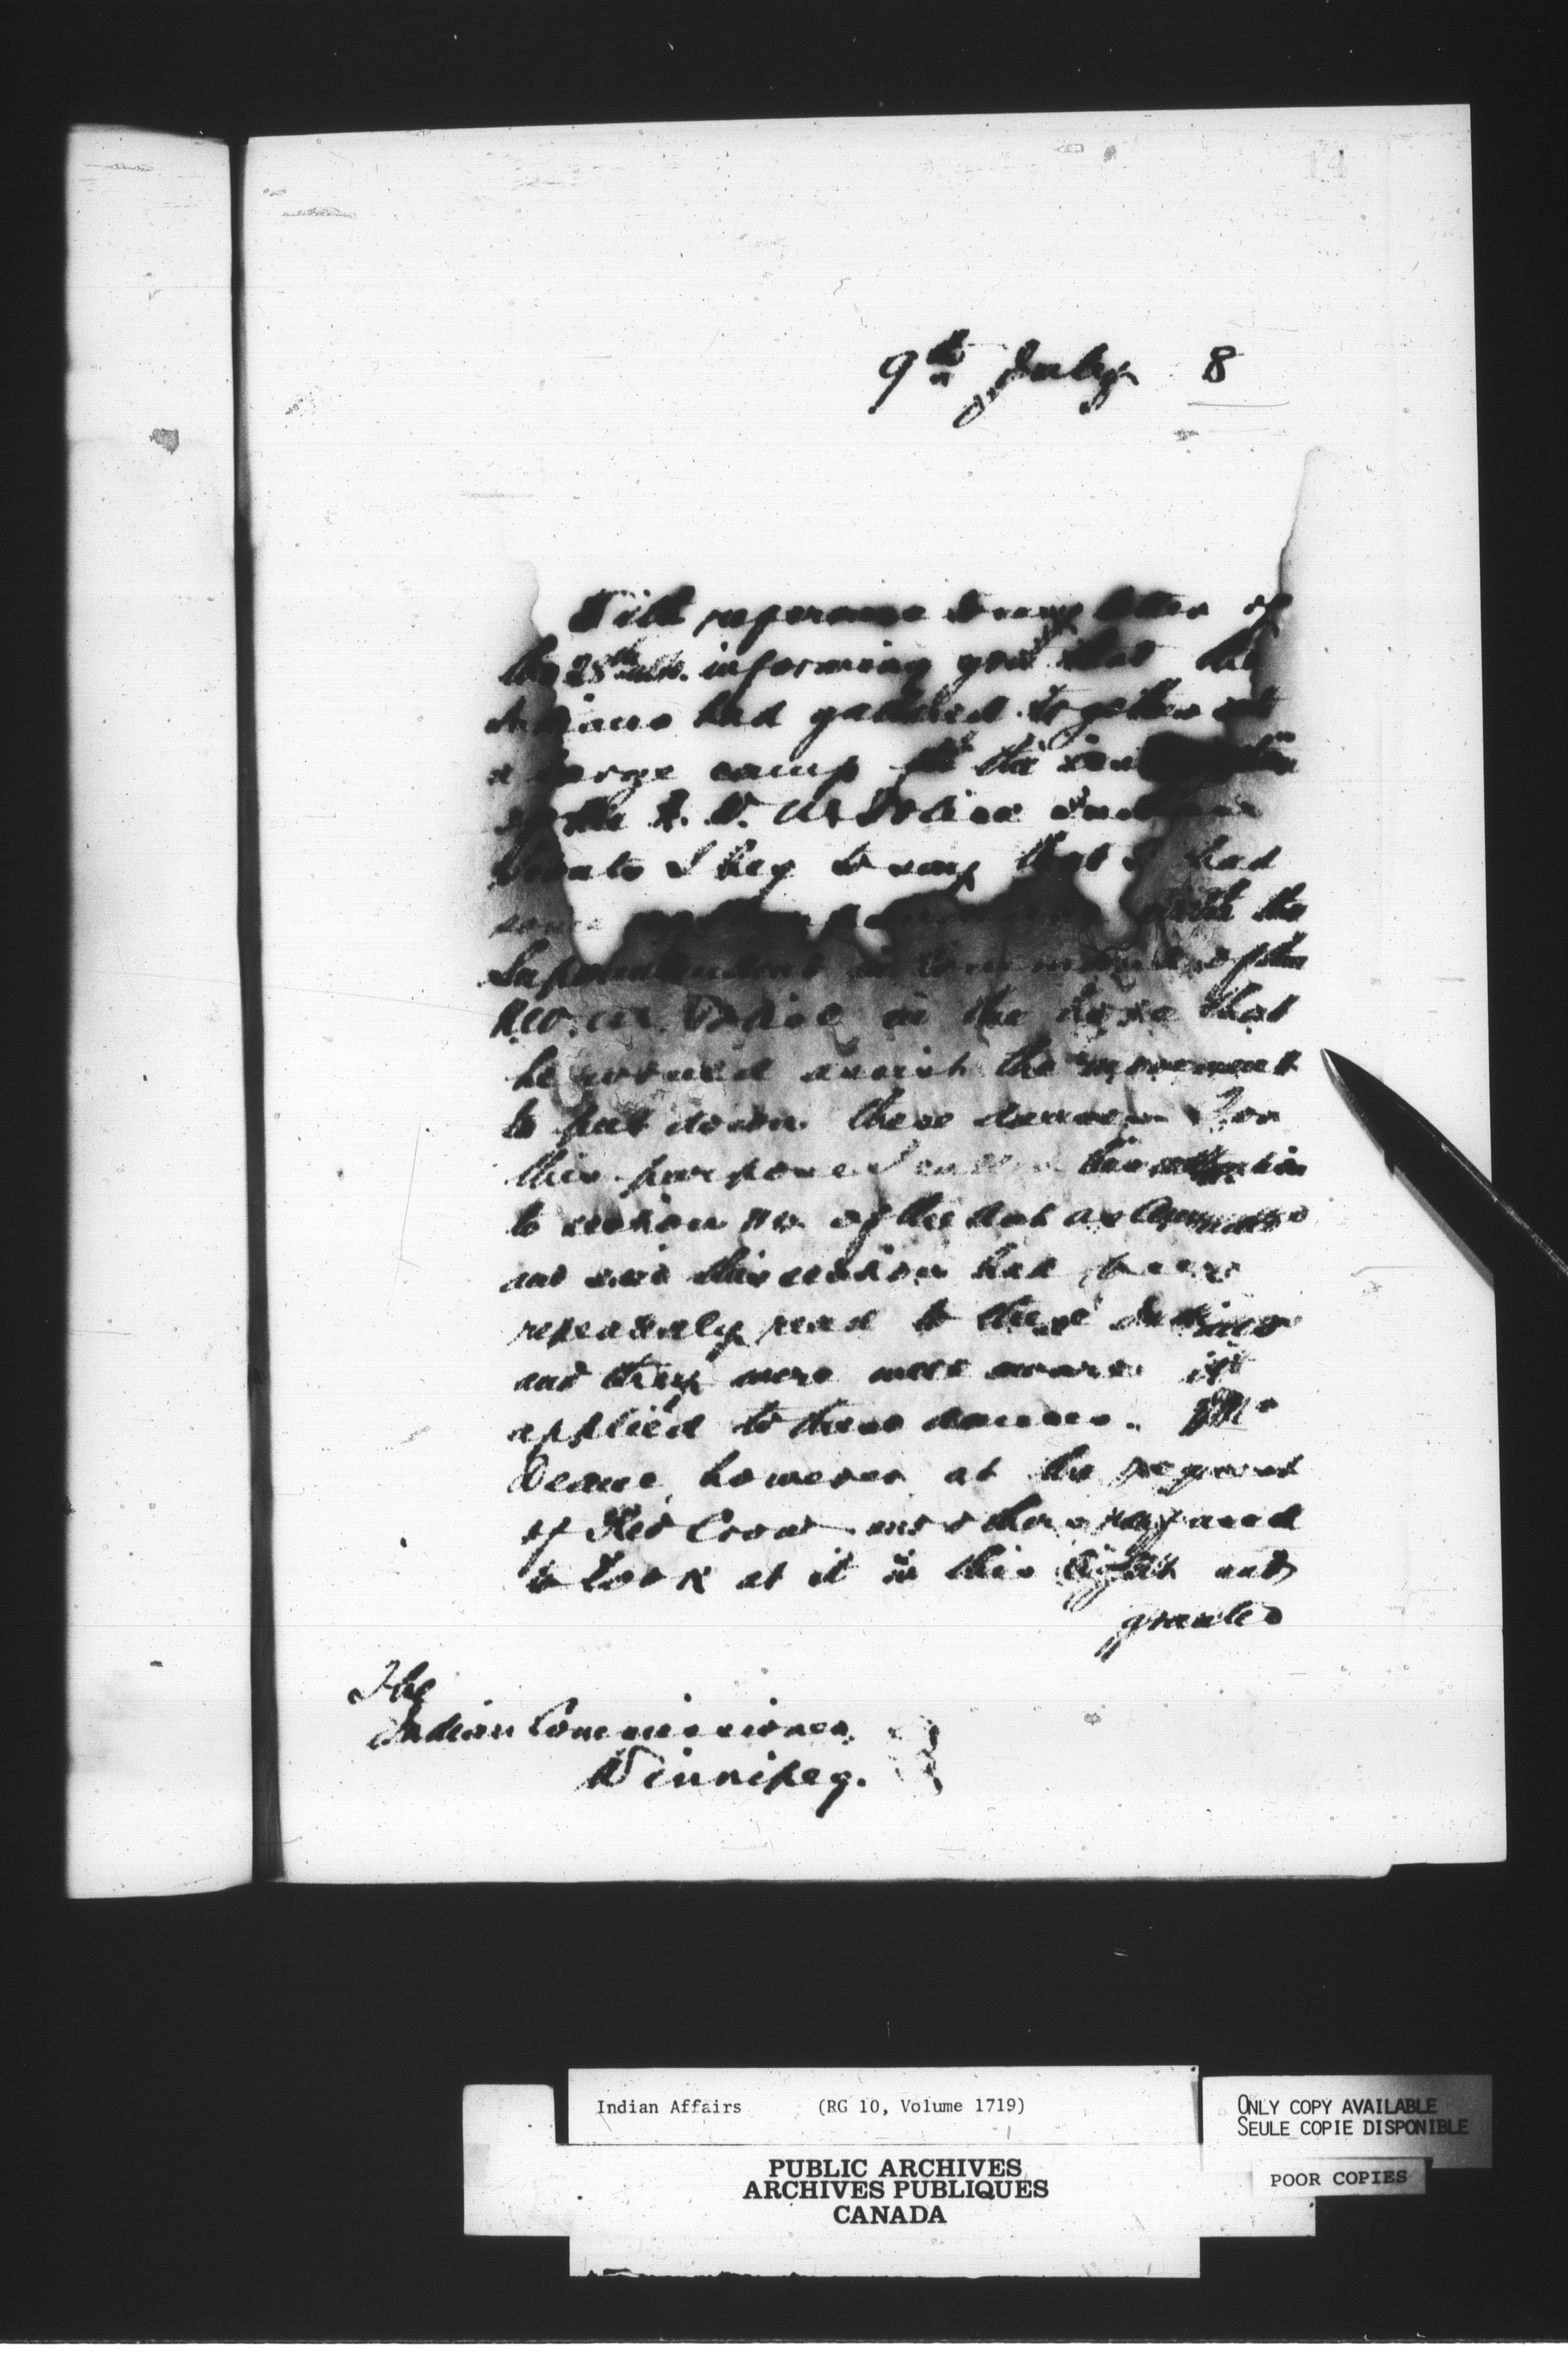 14
9th July 8
With reference to my letter of
the 28th ult. informing you that the
Indians had gathered together in
a large camp for the
of the N. W. M. Police
I beg to say that I had
some with the
Superintendent in Command of the
N.W. M. Police in the hope that
he would assist the movement
to put down these dances. For
this purpose I called his attention
to section 114 of the Act as Amended
and said this section had been
repeatedly read to these Indians
and they were well aware it
applied to these dances. Mr
Deane, however, at the request
of Red Crow and others refused
to look at it in this light and
granted
The
Indian Commissioner
Winnipeg.
Indian Affairs (RG 10, Volume 1719)
PUBLIC ARCHIVES
ARCHIVES PUBLIQUES
CANADA
ONLY COPY AVAILABLE
SEULE COPIE DISPONIBLE
POOR COPIES